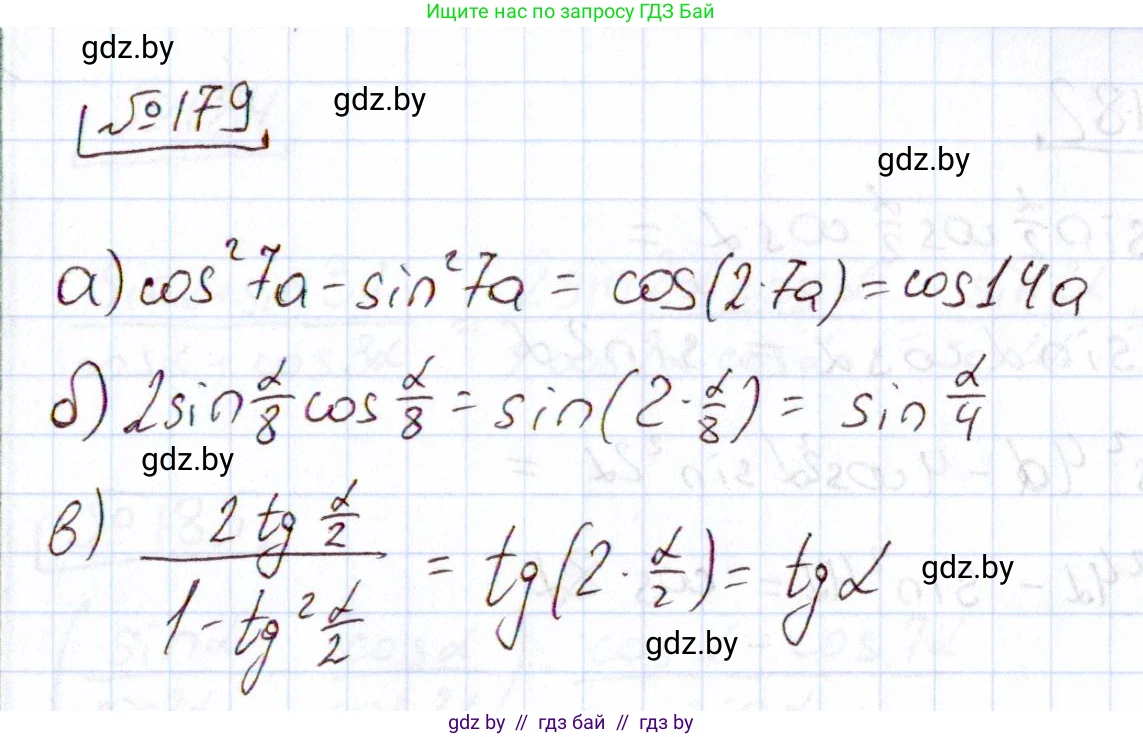 Ищите нас по запросу ГДЗ Бай
gdz.by
№179
gdz.by
gdz.by
а) cos²7a - sin²7a = cos(2·7a) = cos14a
б) 2sin α/8 cos α/8 = sin(2·α/8) = sin α/4
gdz.by
в) 2 tg α/2 / 1 - tg² α/2 = tg(2·α/2) = tg α
gdz.by
gdz.by
gdz by // гдз бай // гдз by